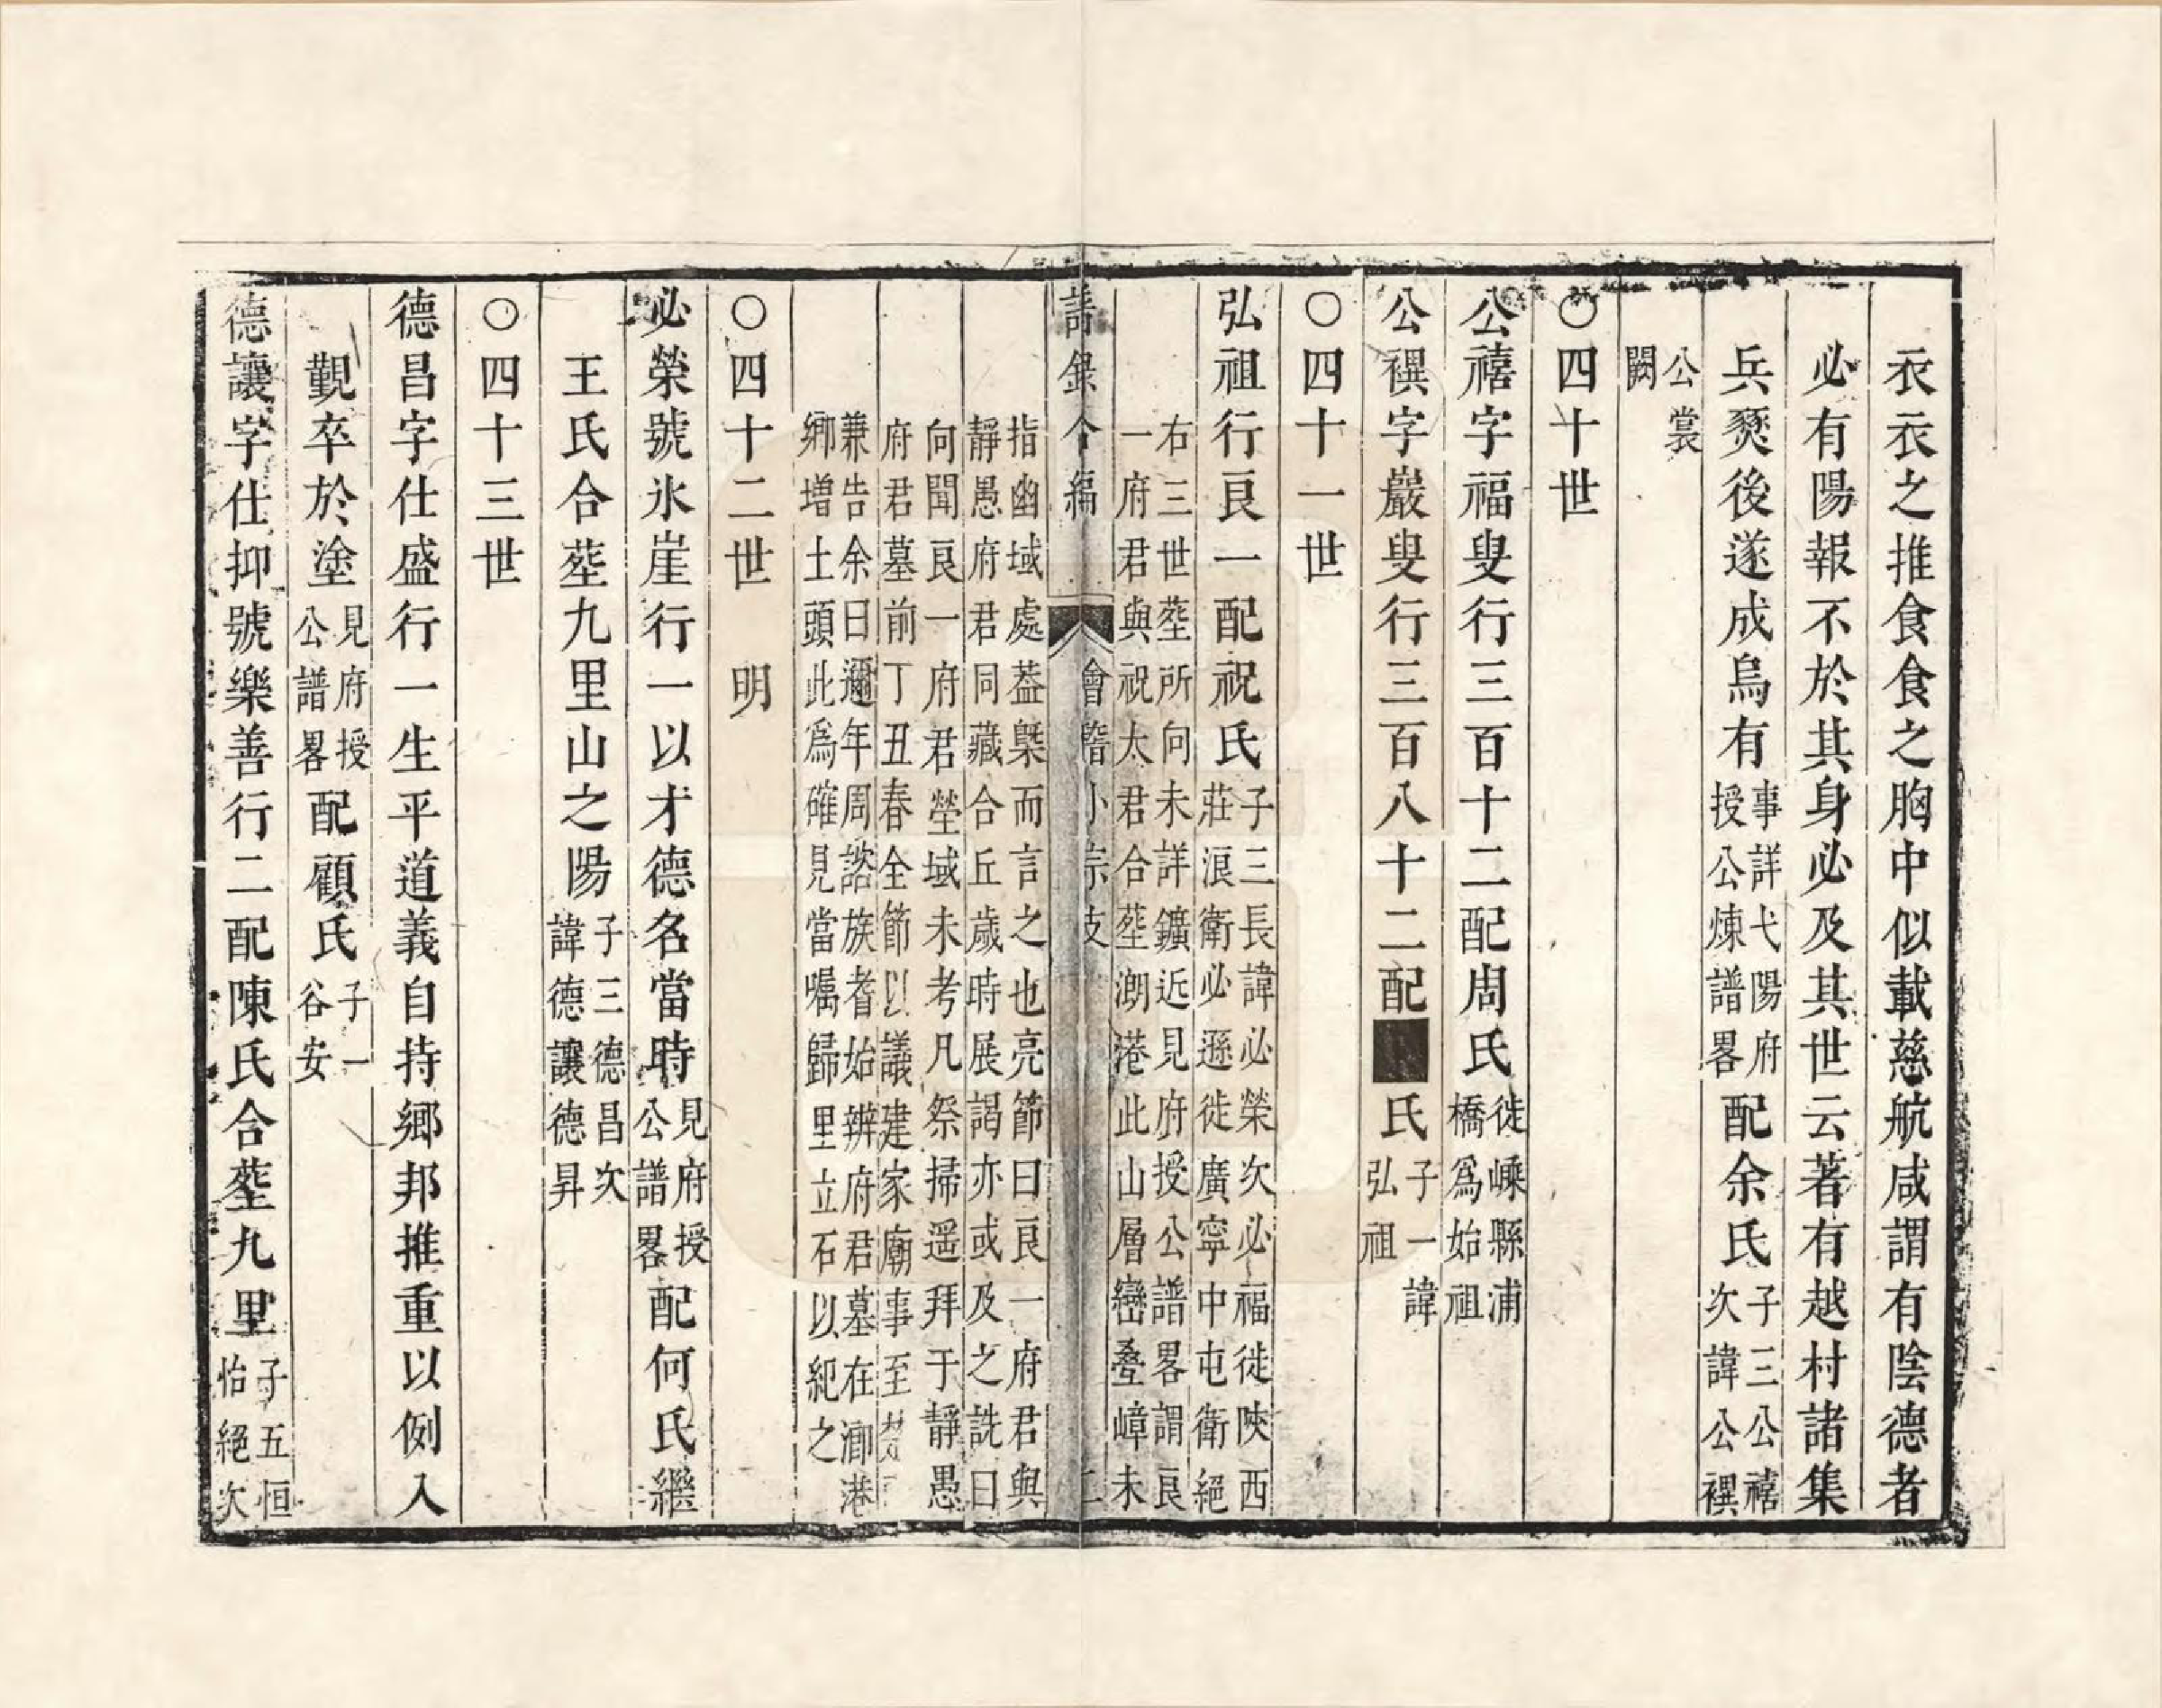 衣衣之推食食之胸中似載慈航咸謂有陰德者
必有陽報不於其身必及其世云著有越村諸集
兵燹後遂成烏有事詳弋陽府
授公煉譜畧配余氏子三公禧
次諱公禩
公裳
闕
○四十世
公禧字福叟行三百十二配周氏徙嵊縣浦
橋爲始祖
公禩字巖叟行三百八十二配■氏子一諱
弘祖
○四十一世
弘祖行良一配祝氏子三長諱必榮次必福徙陜西
莊浪衛必遜徙廣寧中屯衛絕
右三世塟所向未詳鑛近見府授公譜畧謂良
一府君與祝太君合塟淜港此山層巒疊嶂未
譜錄合編
會稽小宗支
二
指幽域處葢槩而言之也亮節曰良一府君與
靜愚府君同藏合丘歲時展謁亦或及之詵曰
向聞良一府君塋域未考凡祭掃遥拜于靜愚
府君墓前丁丑春全節以議建家廟事至
兼告余曰邇年周諮族耆始辨府君墓在淜港
鄉增土頭此爲確見當囑歸里立石以紀之
○四十二世　明
必榮號氷崖行一以才德名當時見府授
公譜畧配何氏繼
王氏合塟九里山之陽子三德昌次
諱德讓德昇
○四十三世
德昌字仕盛行一生平道義自持鄉邦推重以例入
觐卒於塗見府授
公譜畧配顧氏子一
谷安
德讓字仕抑號樂善行二配陳氏合塟九里子五恒
怡絕次